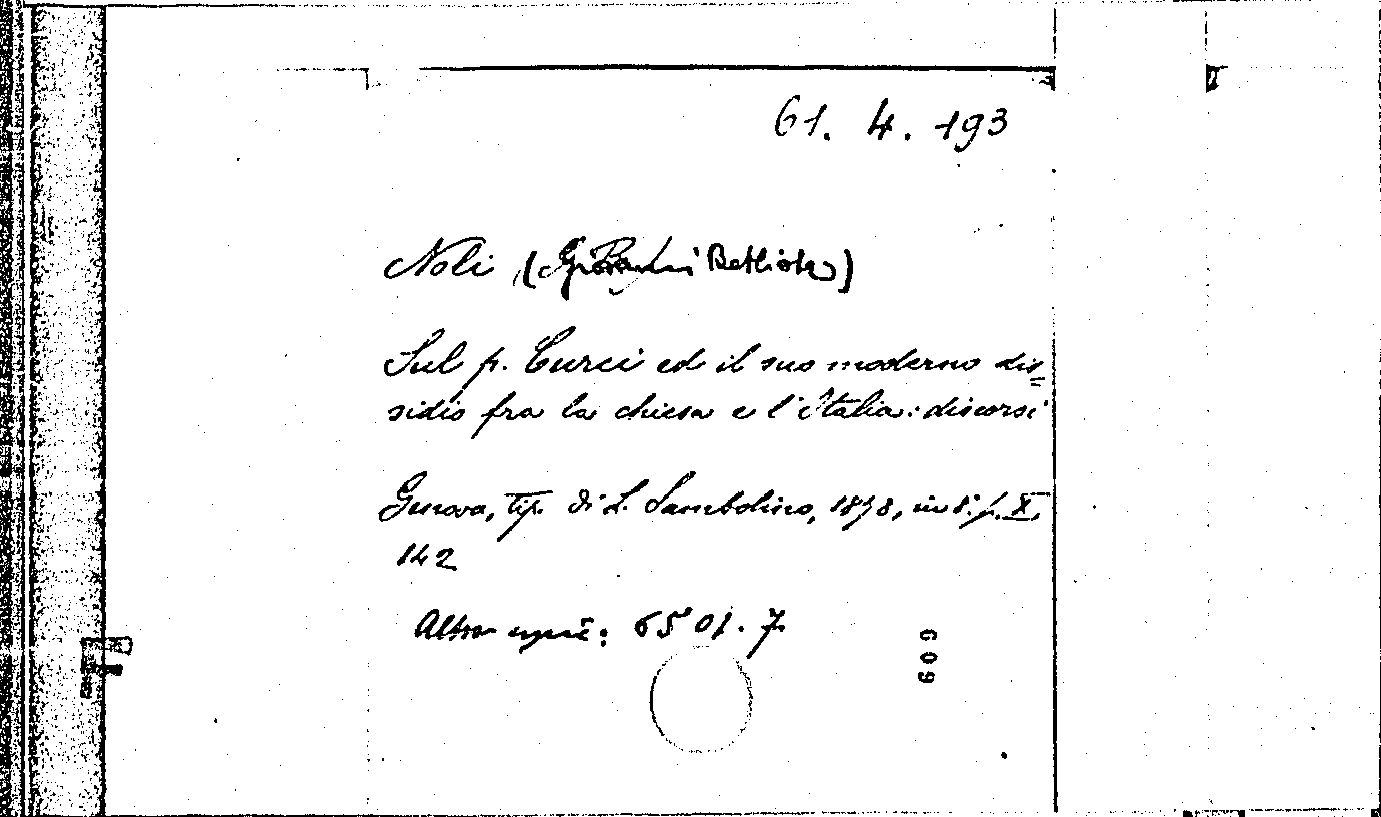 61. 4. 193
Noli (Giovanni Battista)
Sul p. Curci ed il suo moderno dis=
sidio fra la chiesa e l'Italia: discorsi
Genova, tip. di L. Sambolino, 1878, in 8. p. X,
142
Altra copia: 65 01. 7.
609